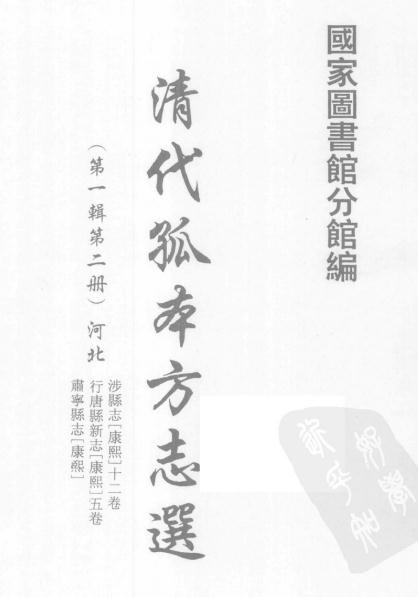 國家圖書館分館編
清代孤本方志選
（第一輯第二册）河北
涉縣志［康熙］十二卷
行唐縣新志［康熙］五卷
肅寧縣志［康熙］